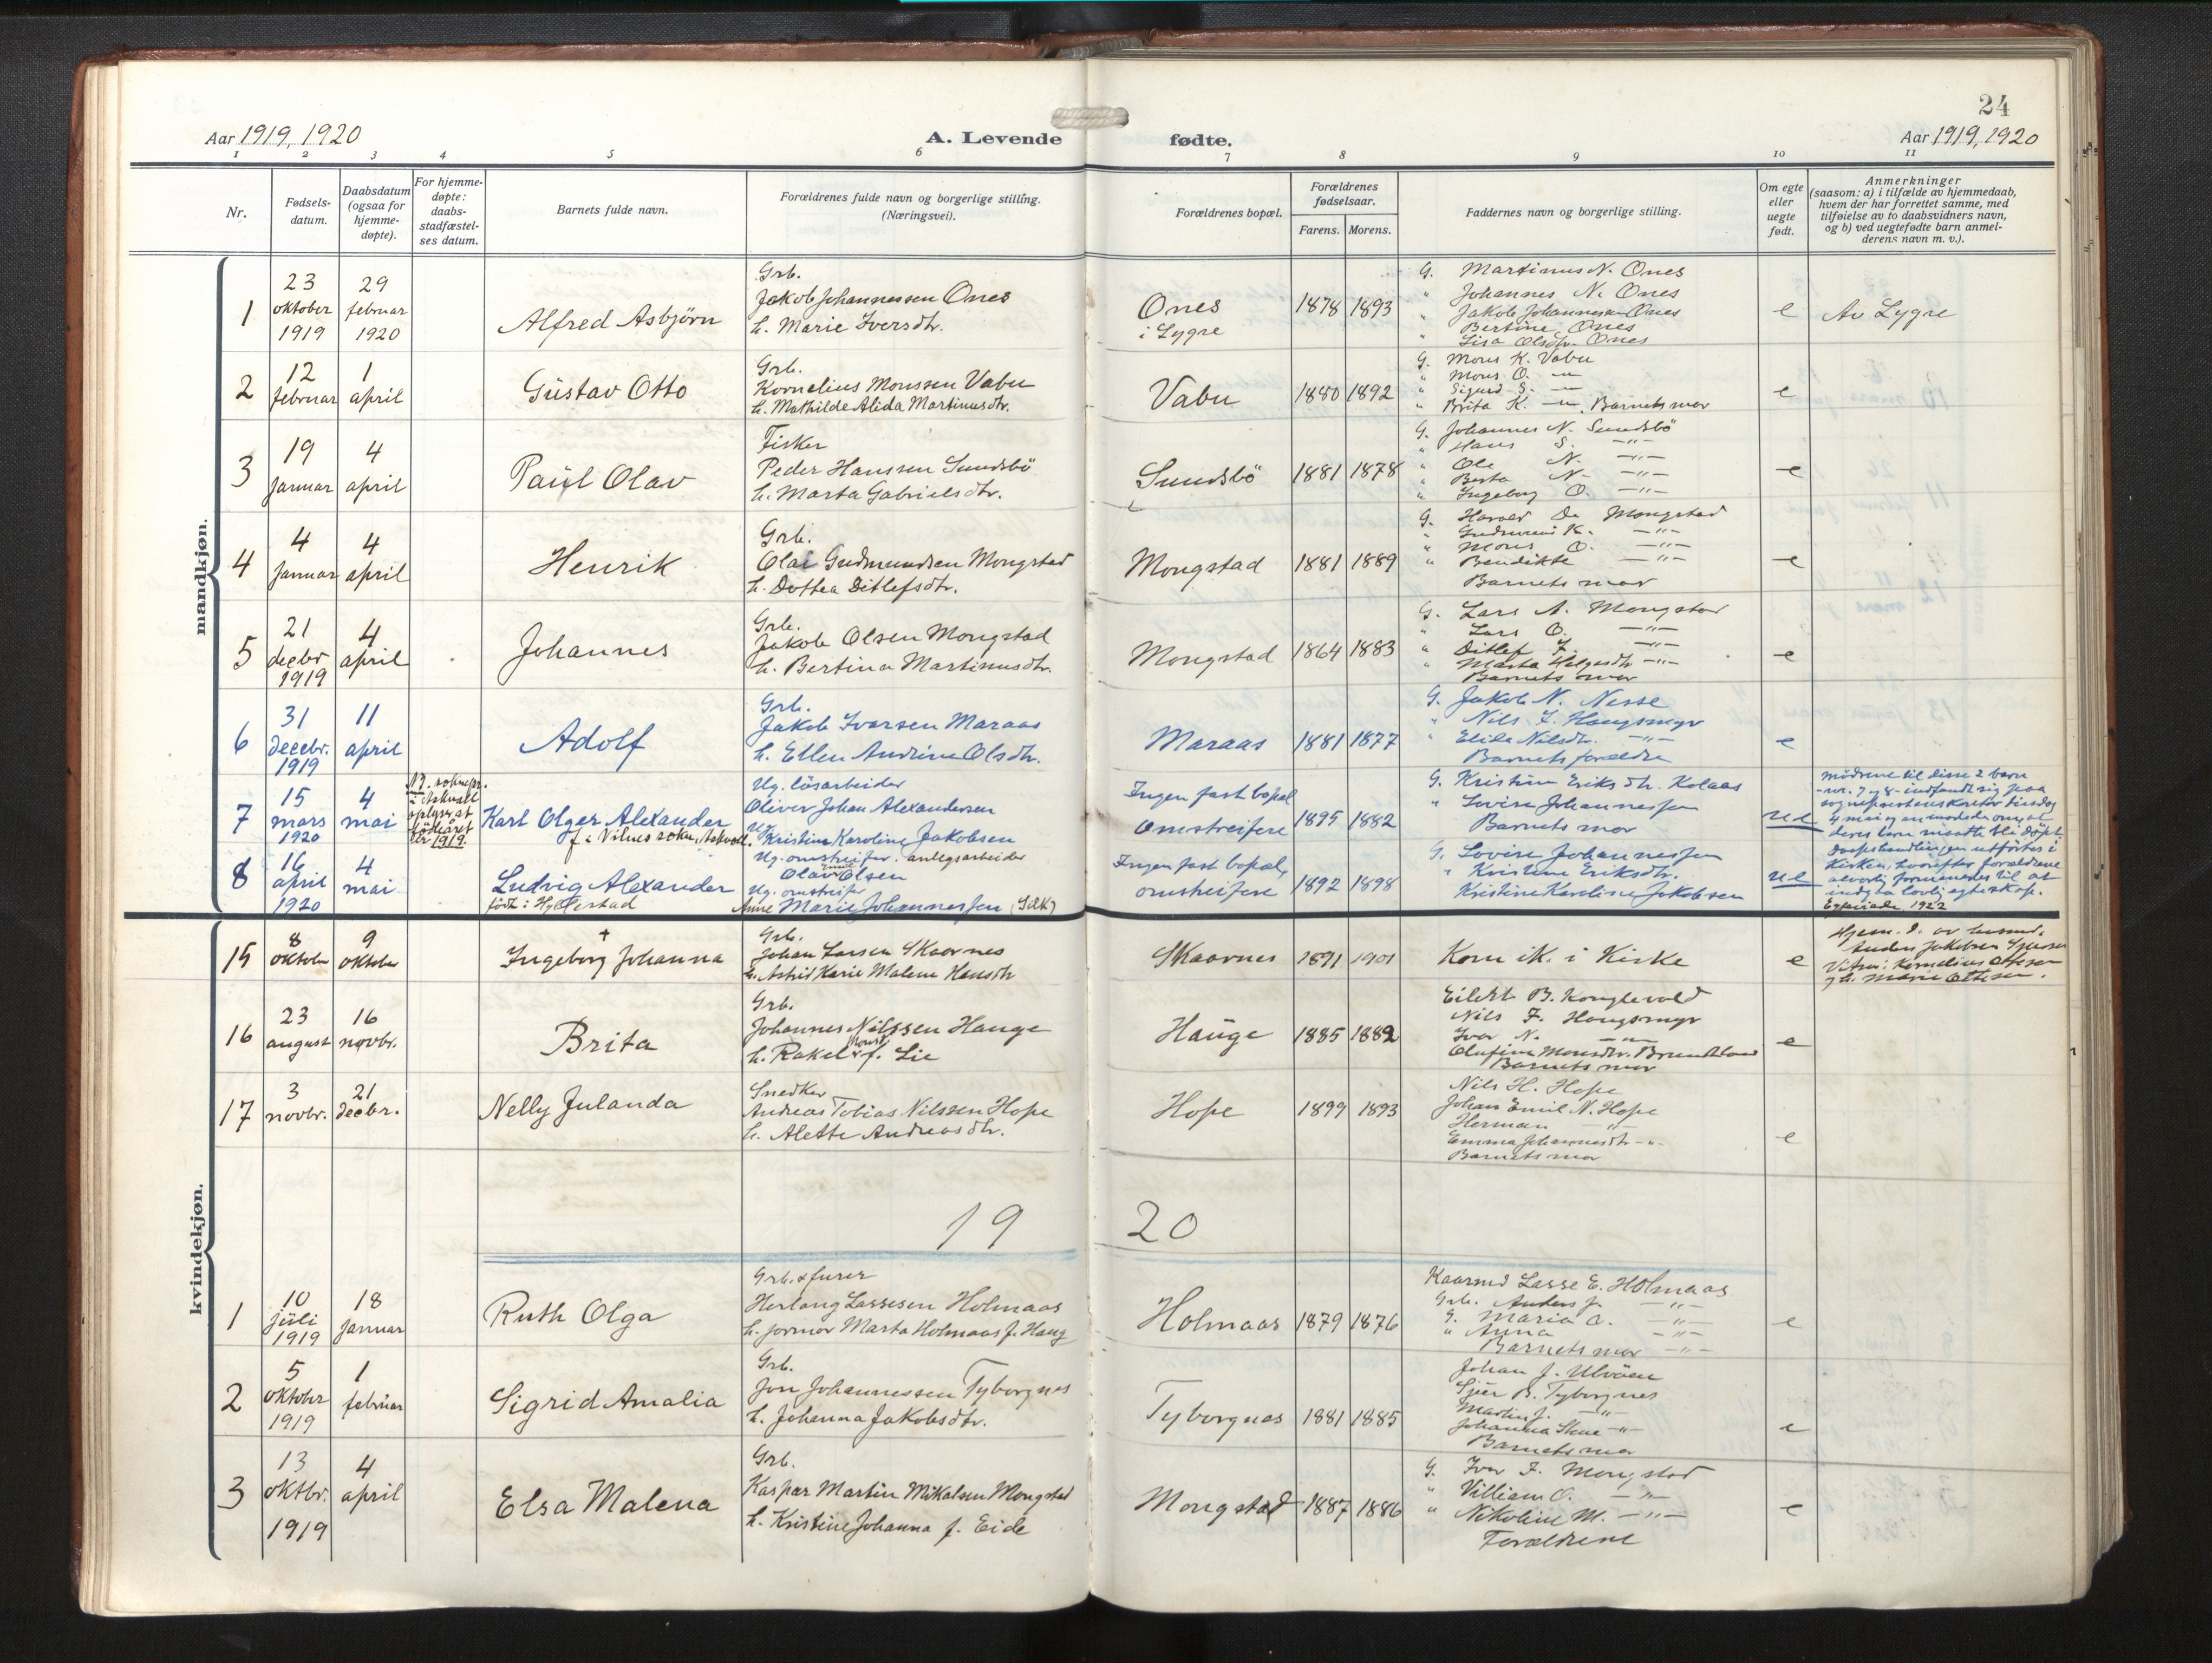 24
Aar 1919, 1920
A. Levende
fødte.
Aar 1919, 1920
1 2 3 4 5 6 7 8 9 10 11
Nr.
Fødsels-
datum.
Daabsdatum
(ogsaa for
hjemme-
døpte).
For hjemme-
døpte:
daabs-
stadfæstel-
ses datum.
Barnets fulde navn.
Forældrenes fulde navn og borgerlige stilling.
(Næringsvei).
Forældrenes bopæl.
Forældrenes
fødselsaar.
Farens. Morens.
Faddernes navn og borgerlige stilling.
Om egte
eller
uegte
født.
Anmerkninger
(saasom: a) i tilfælde av hjemmedaab,
hvem der har forrettet samme, med
tilføielse av to daabsvidners navn,
og b) ved uegtefødte barn anmel-
derens navn m. v.).
mandkjøn.
1
23
oktober
1919
29
februar
1920
Alfred Asbjörn
Grb.
Jakob Johannessen Ones
h. Marie Iversdtr.
Ones
i Lygre
1878 1893
G. Martinus N. Ones
" Johannes N. Ones
" Jakob Johannessen Ones
" Bertine Ones
" Lisa Olsdtr. Ones
e
Av Lygre
2
12
februar
1
april
Gustav Otto
Grb.
Kornelius Monssen Vabu
h. Mathilde Alida Martinusdtr.
Vabu
1880 1892
G. Mons K. Vabu
" Mons O. -"-
" Sigurd S. -"-
" Brita K. -"- Barnets mor
e
3
19
januar
4
april
Paul Olav
Fisker
Peder Hanssen Sundsbö
h. Marta Gabrielsdtr.
Sundsbö
1881 1878
G. Johannes N. Sundsbö
" Hans S. -"-
" Ole N. -"-
" Berta N. -"-
" Ingeborg O. -"-
e
4
4
januar
4
april
Henrik
Grb.
Olai Gudmundsen Mongstad
h. Dottea Ditlefsdtr.
Mongstad
1881 1889
G. Harald O. Mongstad
" Gudmund K. -"-
" Mons O. -"-
" Bendikte -"-
Barnets mor
e
5
21
decbr
1919
4
april
Johannes
Grb.
Jakob Olsen Mongstad
h. Bertina Martinusdtr.
Mongstad
1864 1883
G. Lars A. Mongstad
" Lars O. -"-
" Ditlef J. -"-
" Marta Helgesdtr -"-
Barnets mor
e
6
31
decebr.
1919
11
april
Adolf
Grb.
Jakob Ivarsen Maraas
h. Ellen Andrine Olsdtr.
Maraas
1881 1877
G. Jakob N. Nesse
" Nils J. Hougsmyr
" Elida Nilsdtr. -"-
Barnets forældre
e
7
15
mars
1920
4
mai
i Askvoll
oplyser at
födeåret
er 1919.
Karl Olger Alexander
f. i Vilnes sokn, Askvoll.
Ug. lösarbeider
Oliver Johan Alexandersen
Ug.
Kristine Karoline Jakobsen
Ingen fast bopæl
Omstreifere
1895 1882
G. Kristine Eriksdtr. Kolaas
" Lovise Johannessen
Barnets mor
ue
Mödrene til disse 2 barn
-nr. 7 og 8- indfandt sig paa
sogneprestens kontor tirsdag
4 mai og anmodede om, at
deres barn maatte bli döpt.
Daapshandlingen utförtes i
Kirken, hvorefter forældrene
alvorlig formanedes til at
indgaa lovlig egteskap.
Egteviede 1922
8
16
april
1920
4
mai
Ludvig Alexander
født i Hyllestad
Ug. omstreifer. anlegsarbeider
Olav Olsen
Ug. omstreifer
Anne Marie Johannessen
Ingen fast bopæl,
omstreifere
1892 1898
G. Lovise Johannessen
" Kristine Eriksdtr.
Kristine Karoline Jakobsen
ue
kvindekjøn.
15
8
oktober
9
oktober
†
Ingeborg Johanna
Grb.
Johan Larsen Skaarnes
h. Astrid Karie Malene Hansdtr
Skaarnes
1891 1901
Kom ik. i Kirke
e
Hjem. d. av
Anders Jakobsen
Vitner: Kornelius Ottesen
og h. Marie Ottesen.
16
23
august
16
novbr.
Brita
Grb.
Johannes Nilssen Hauge
h. Rakel Monsd. f. Lie
Hauge
1885 1882
Eilert B. Konglevold
Nils J. Hougsmyr
Ivar N. -"-
Olufine Monsdtr. Brundtland
Barnets mor
e
17
3
novbr.
21
decbr.
Nelly Julanda
Snedker
Andreas Tobias Nilssen Hope
h. Alette Andreasdtr.
Hope
1899 1893
Nils H. Hope
Johan Emil N. Hope
Herman -"-
Emma Johannesdtr -"-
Barnets mor
e
19 20
1
10
juli
1919
18
januar
Ruth Olga
Grb. & furer
Herlaug Lassesen Holmaas
h. jormor Marta Holmaas f. Haug
Holmaas
1879 1876
Kaarmd Lasse E. Holmaas
Grb. Anders J. -"-
G. Maria A. -"-
" Anna -"-
Barnets mor -"-
e
2
5
oktober
1919
1
februar
Sigrid Amalia
Grb.
Jon Johannessen Tyborgnes
h. Johanna Jakobsdtr.
Tyborgnes
1881 1885
Johan J. Ulvöen
Sjur B. Tyborgnes
Martin J. -"-
Johanna Stene -"-
Barnets mor
e
3
13
oktbr.
1919
4
april
Elsa Malena
Grb.
Kaspar Martin Mikalsen Mongstad
h. Kristine Johanna f. Eide
Mongstad
1887 1886
G. Ivar J. Mongstad
" Villiam O. -"-
" Nikoline M. -"-
Forældrene
e